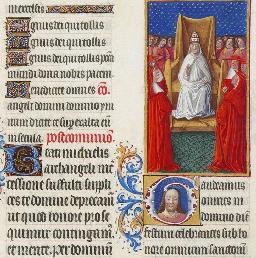 in excelsis
Agnus dei qui tollis
Agnus dei qui tollis
Agnus dei qui tollis pec
mundi dona nobis pacem
Benedicite omnes co
angeli domini domino ym
num dicite et supexalta eu
in secula. postcommunio
Beati michaelis
archangeli
cessione suffulti supplices
te domine deprecam
ut quod honore prose
quimur contingam
et mente. per dominum
Gaudeamus
omnes in
domino diem
festum celebrantes sub ho
nore omnium sanctorum